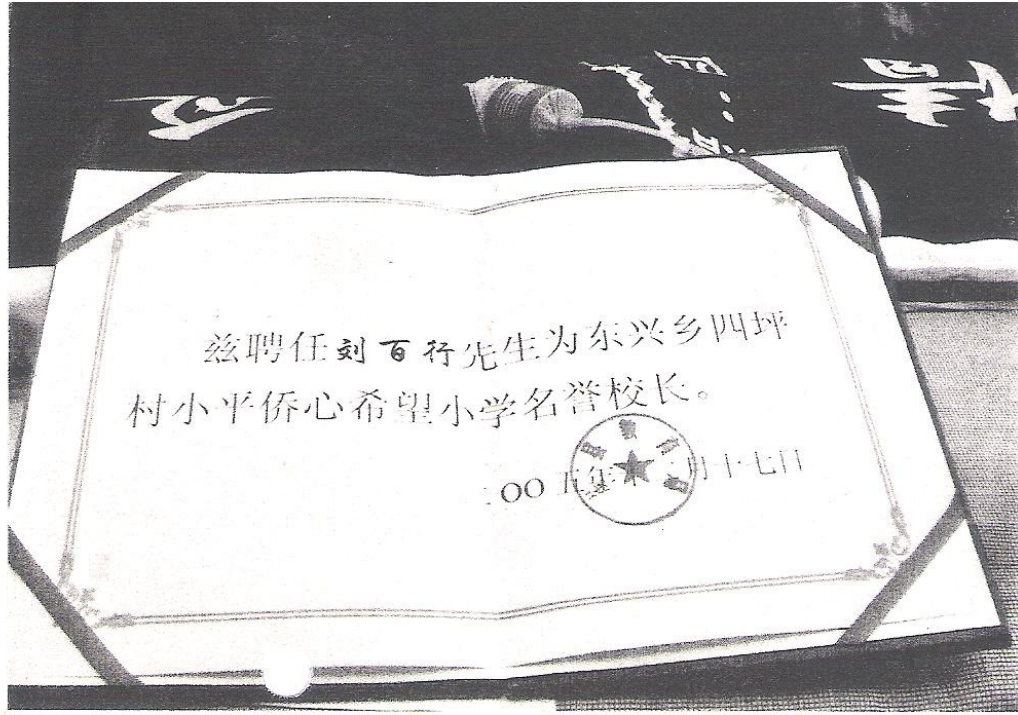 兹聘任刘百行先生为东兴乡四坪
村小平侨心希望小学名誉校长。
二OO五年十二月十七日